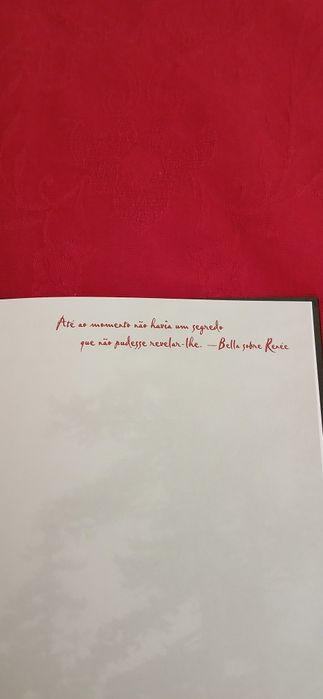 Até ao momento não havia um segredo
que não pudesse revelar-lhe. —Bella sobre Renée